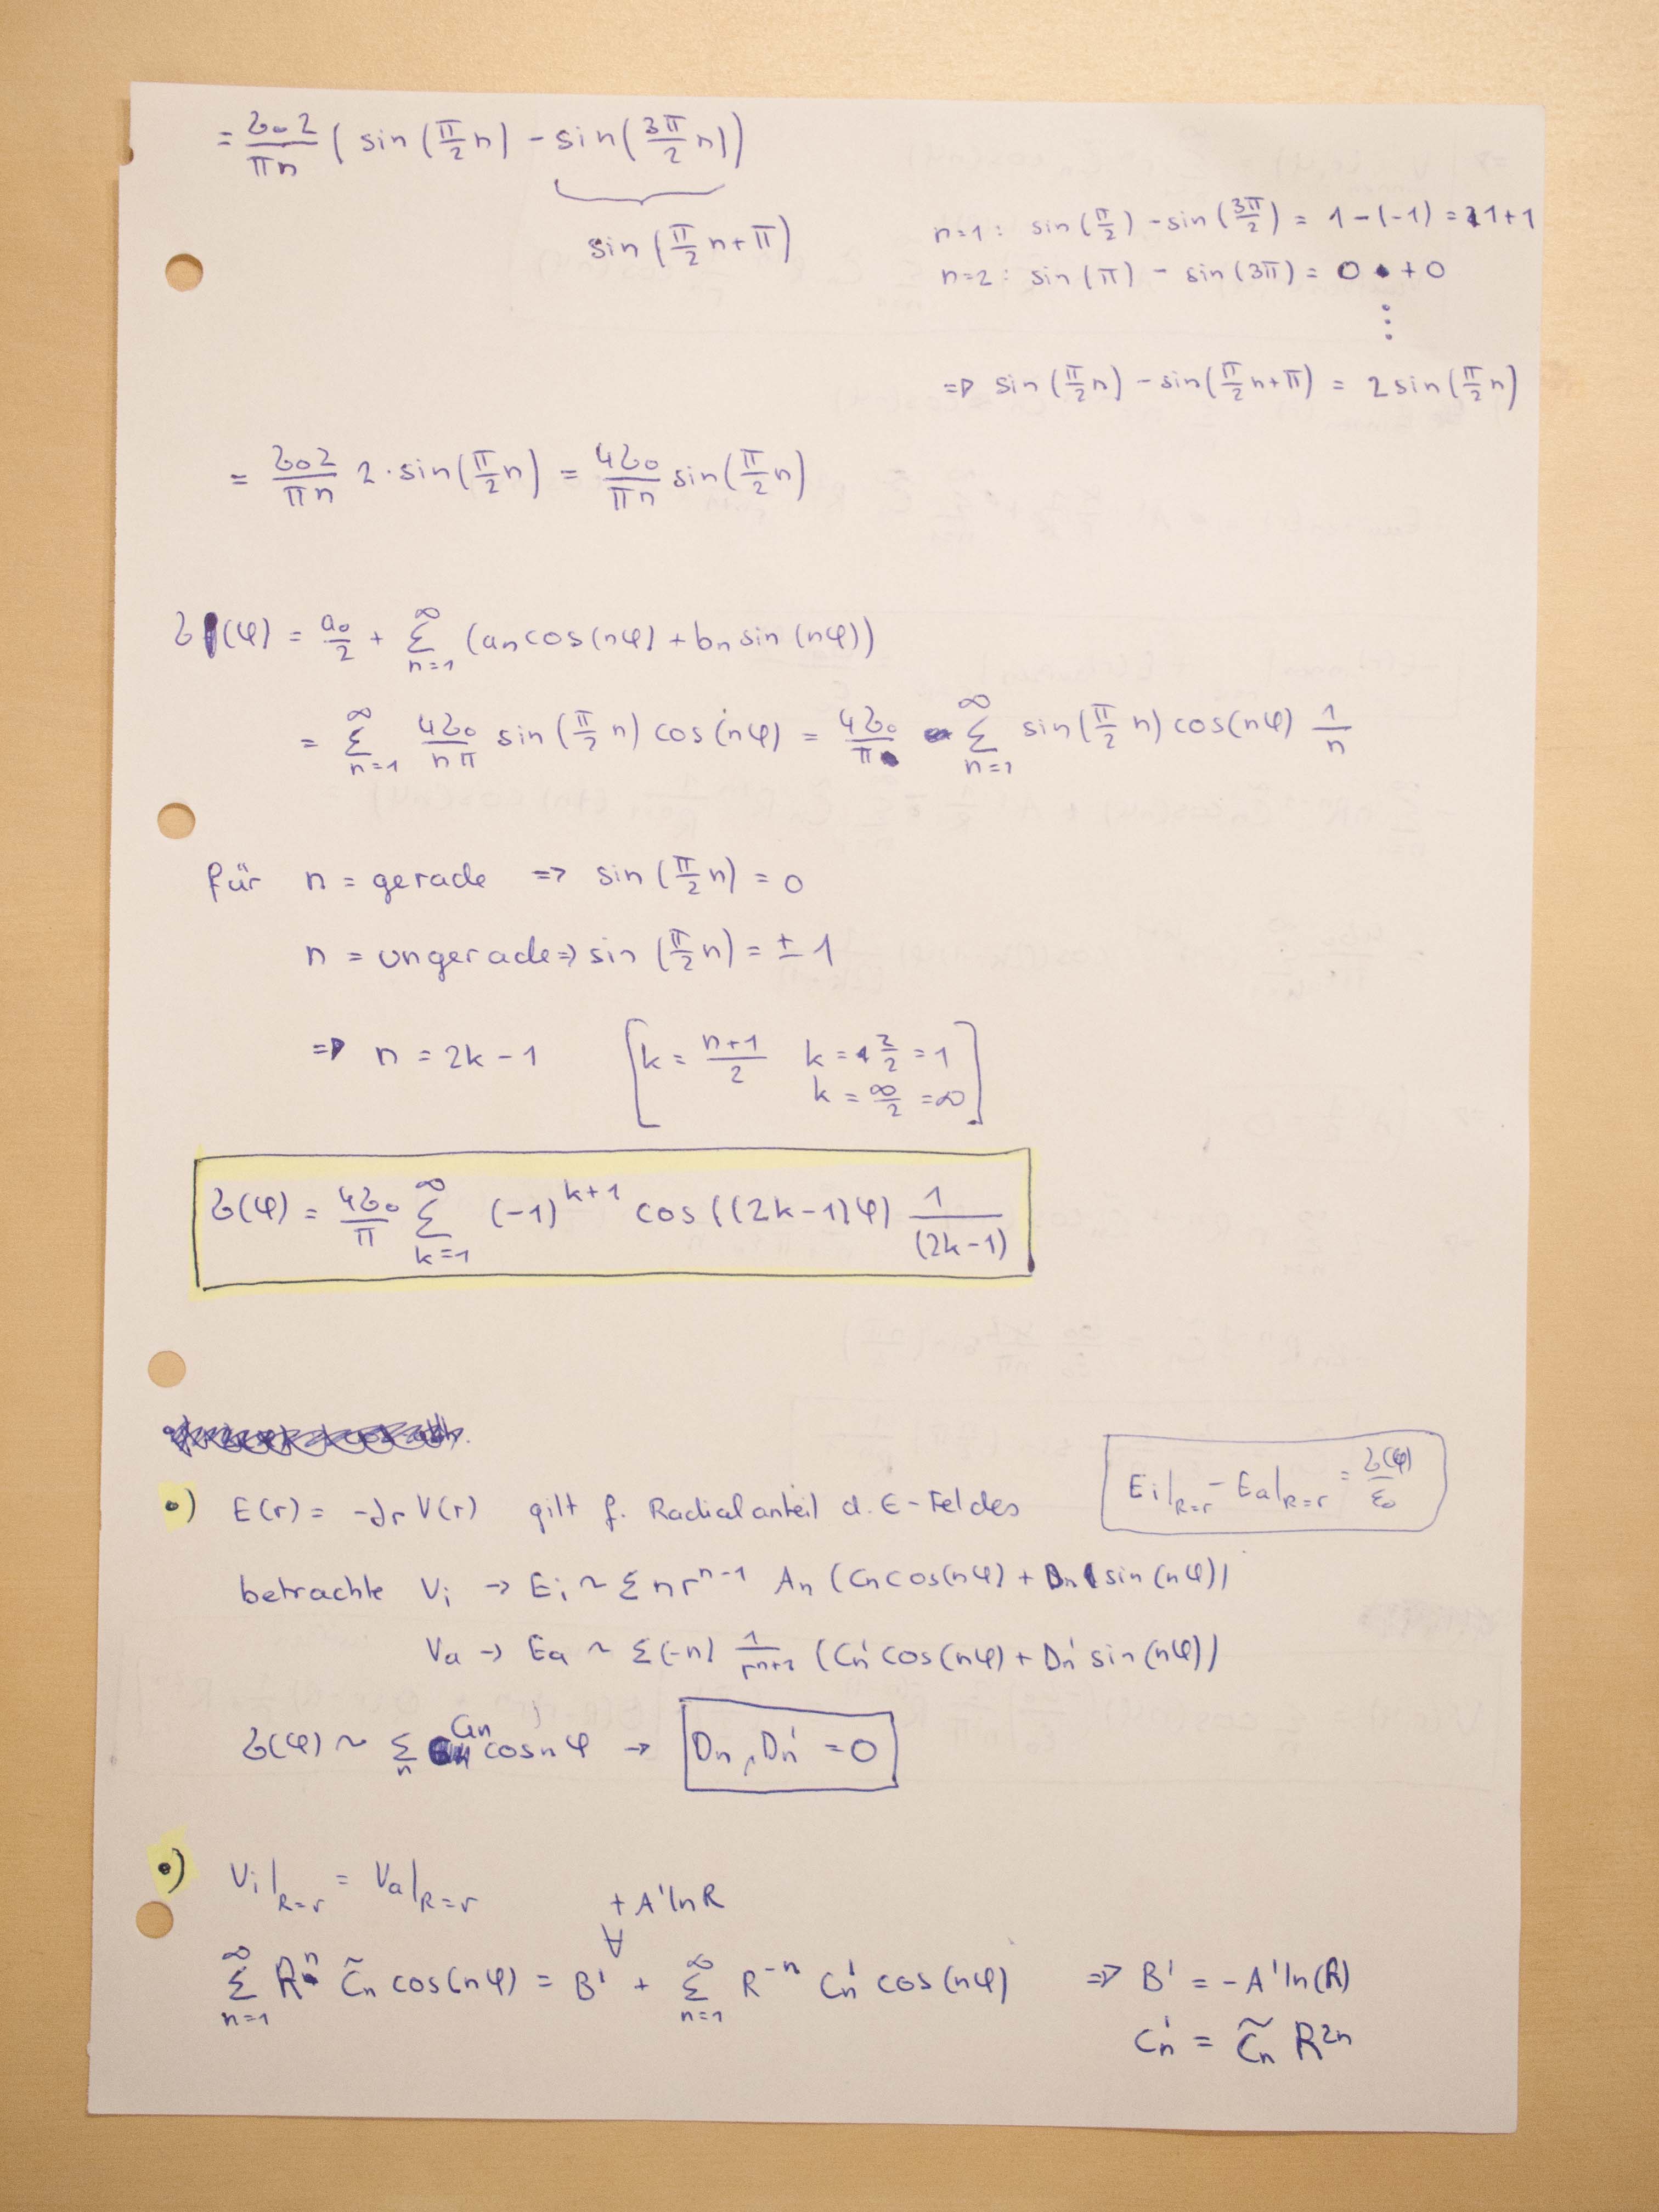 = σ₀2/πn ( sin(π/2 n) - sin(3π/2 n))
sin(π/2 n+π)
n=1: sin(π/2) - sin(3π/2) = 1-(-1) = 1+1
n=2: sin(π) - sin(3π) = 0 + 0
⋮
=> sin(π/2 n) - sin(π/2 n+π) = 2 sin(π/2 n)
= σ₀2/πn 2·sin(π/2 n) = 4σ₀/πn sin(π/2 n)
σ(φ) = a₀/2 + Σ_{n=1}^∞ (an cos(nφ) + bn sin(nφ))
= Σ_{n=1}^∞ 4σ₀/nπ sin(π/2 n) cos(nφ) = 4σ₀/π Σ_{n=1}^∞ sin(π/2 n) cos(nφ) 1/n
für n = gerade => sin(π/2 n) = 0
n = ungerade => sin(π/2 n) = ± 1
=> n = 2k-1 [k = n+1/2 k = 2/2 = 1
k = ∞/2 = ∞]
σ(φ) = 4σ₀/π Σ_{k=1}^∞ (-1)^{k+1} cos((2k-1)φ) 1/(2k-1)
•) E(r) = -∂r V(r) gilt f. Radialanteil d. E-Feldes
Ei|_{R=r} - Ea|_{R=r} = σ(φ)/ε₀
betrachte Vi → Ei ~ Σ n r^{n-1} An (Cn cos(nφ) + Dn sin(nφ))
Va → Ea ~ Σ(-n) 1/r^{n+1} (Cn' cos(nφ) + Dn' sin(nφ))
σ(φ) ~ Σ_n an cos nφ → Dn, Dn' = 0
•) Vi|_{R=r} = Va|_{R=r}
+ A' ln R
Σ_{n=1}^∞ R^n C̃n cos(nφ) = B' + Σ_{n=1}^∞ R^{-n} Cn' cos(nφ) => B' = -A' ln(R)
Cn' = C̃n R^{2n}